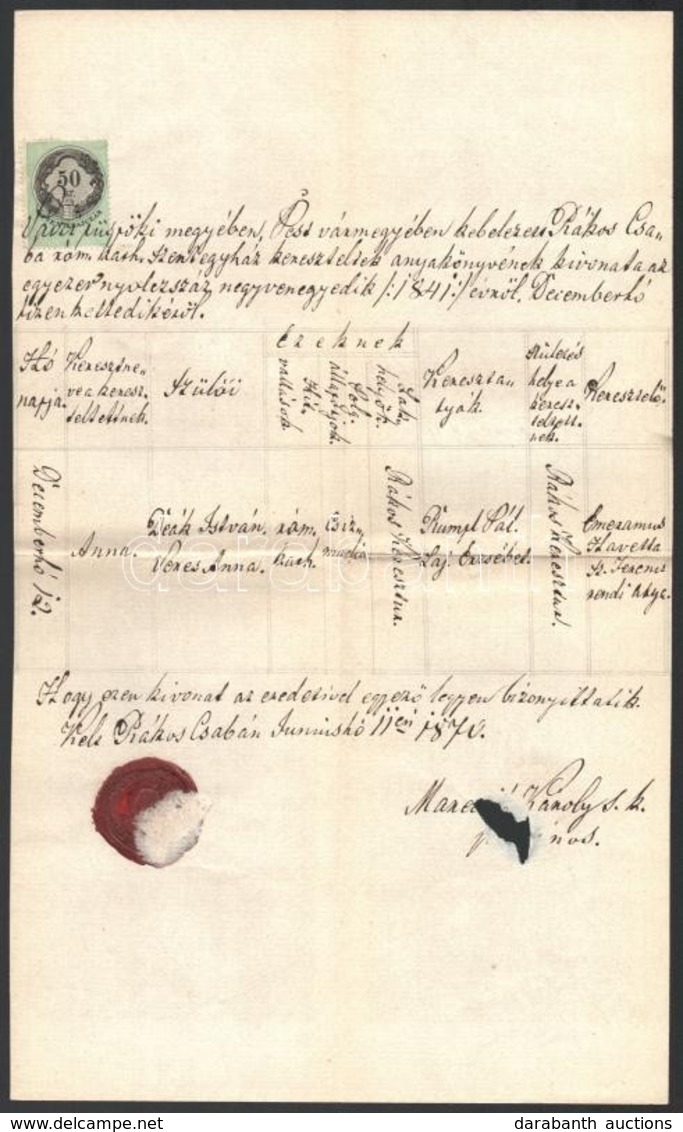 50
kr.
megyében, Pest vármegyében kebelezett Rákos Csa„
ba róm. kath. szentegyház kereszteltek anyakönyvének kivonata az
egyezer nyolczszáz negyvenegyedik /:1841:/ évről, Decemberhó
tizenkettedikéről.
Ezeknek
Hó
napja.
Keresztne„
ve a keresz„
teltettnek.
Szülői
Hit„
vallások
Polg.
állapotjok.
Lak„
helyök.
Kereszta„
tyák.
Születés
helye a
keresz„
teltett„
nek.
Keresztelő.
Decemberhó 12.
Anna.
Deák István.
Veres Anna.
róm.
kath.
Rákos Keresztur.
Rumpl Pál.
Laj. Erzsébet.
Rákos Keresztur.
Emeramus
Havetta
Sz. Ferencz
rendi Atya.
Hogy ezen kivonat az eredetivel egyező legyen bizonyittatik.
Kelt Rákos Csabán Juniushó 11én
Károly s. k.
darabanth
darabanth auctions